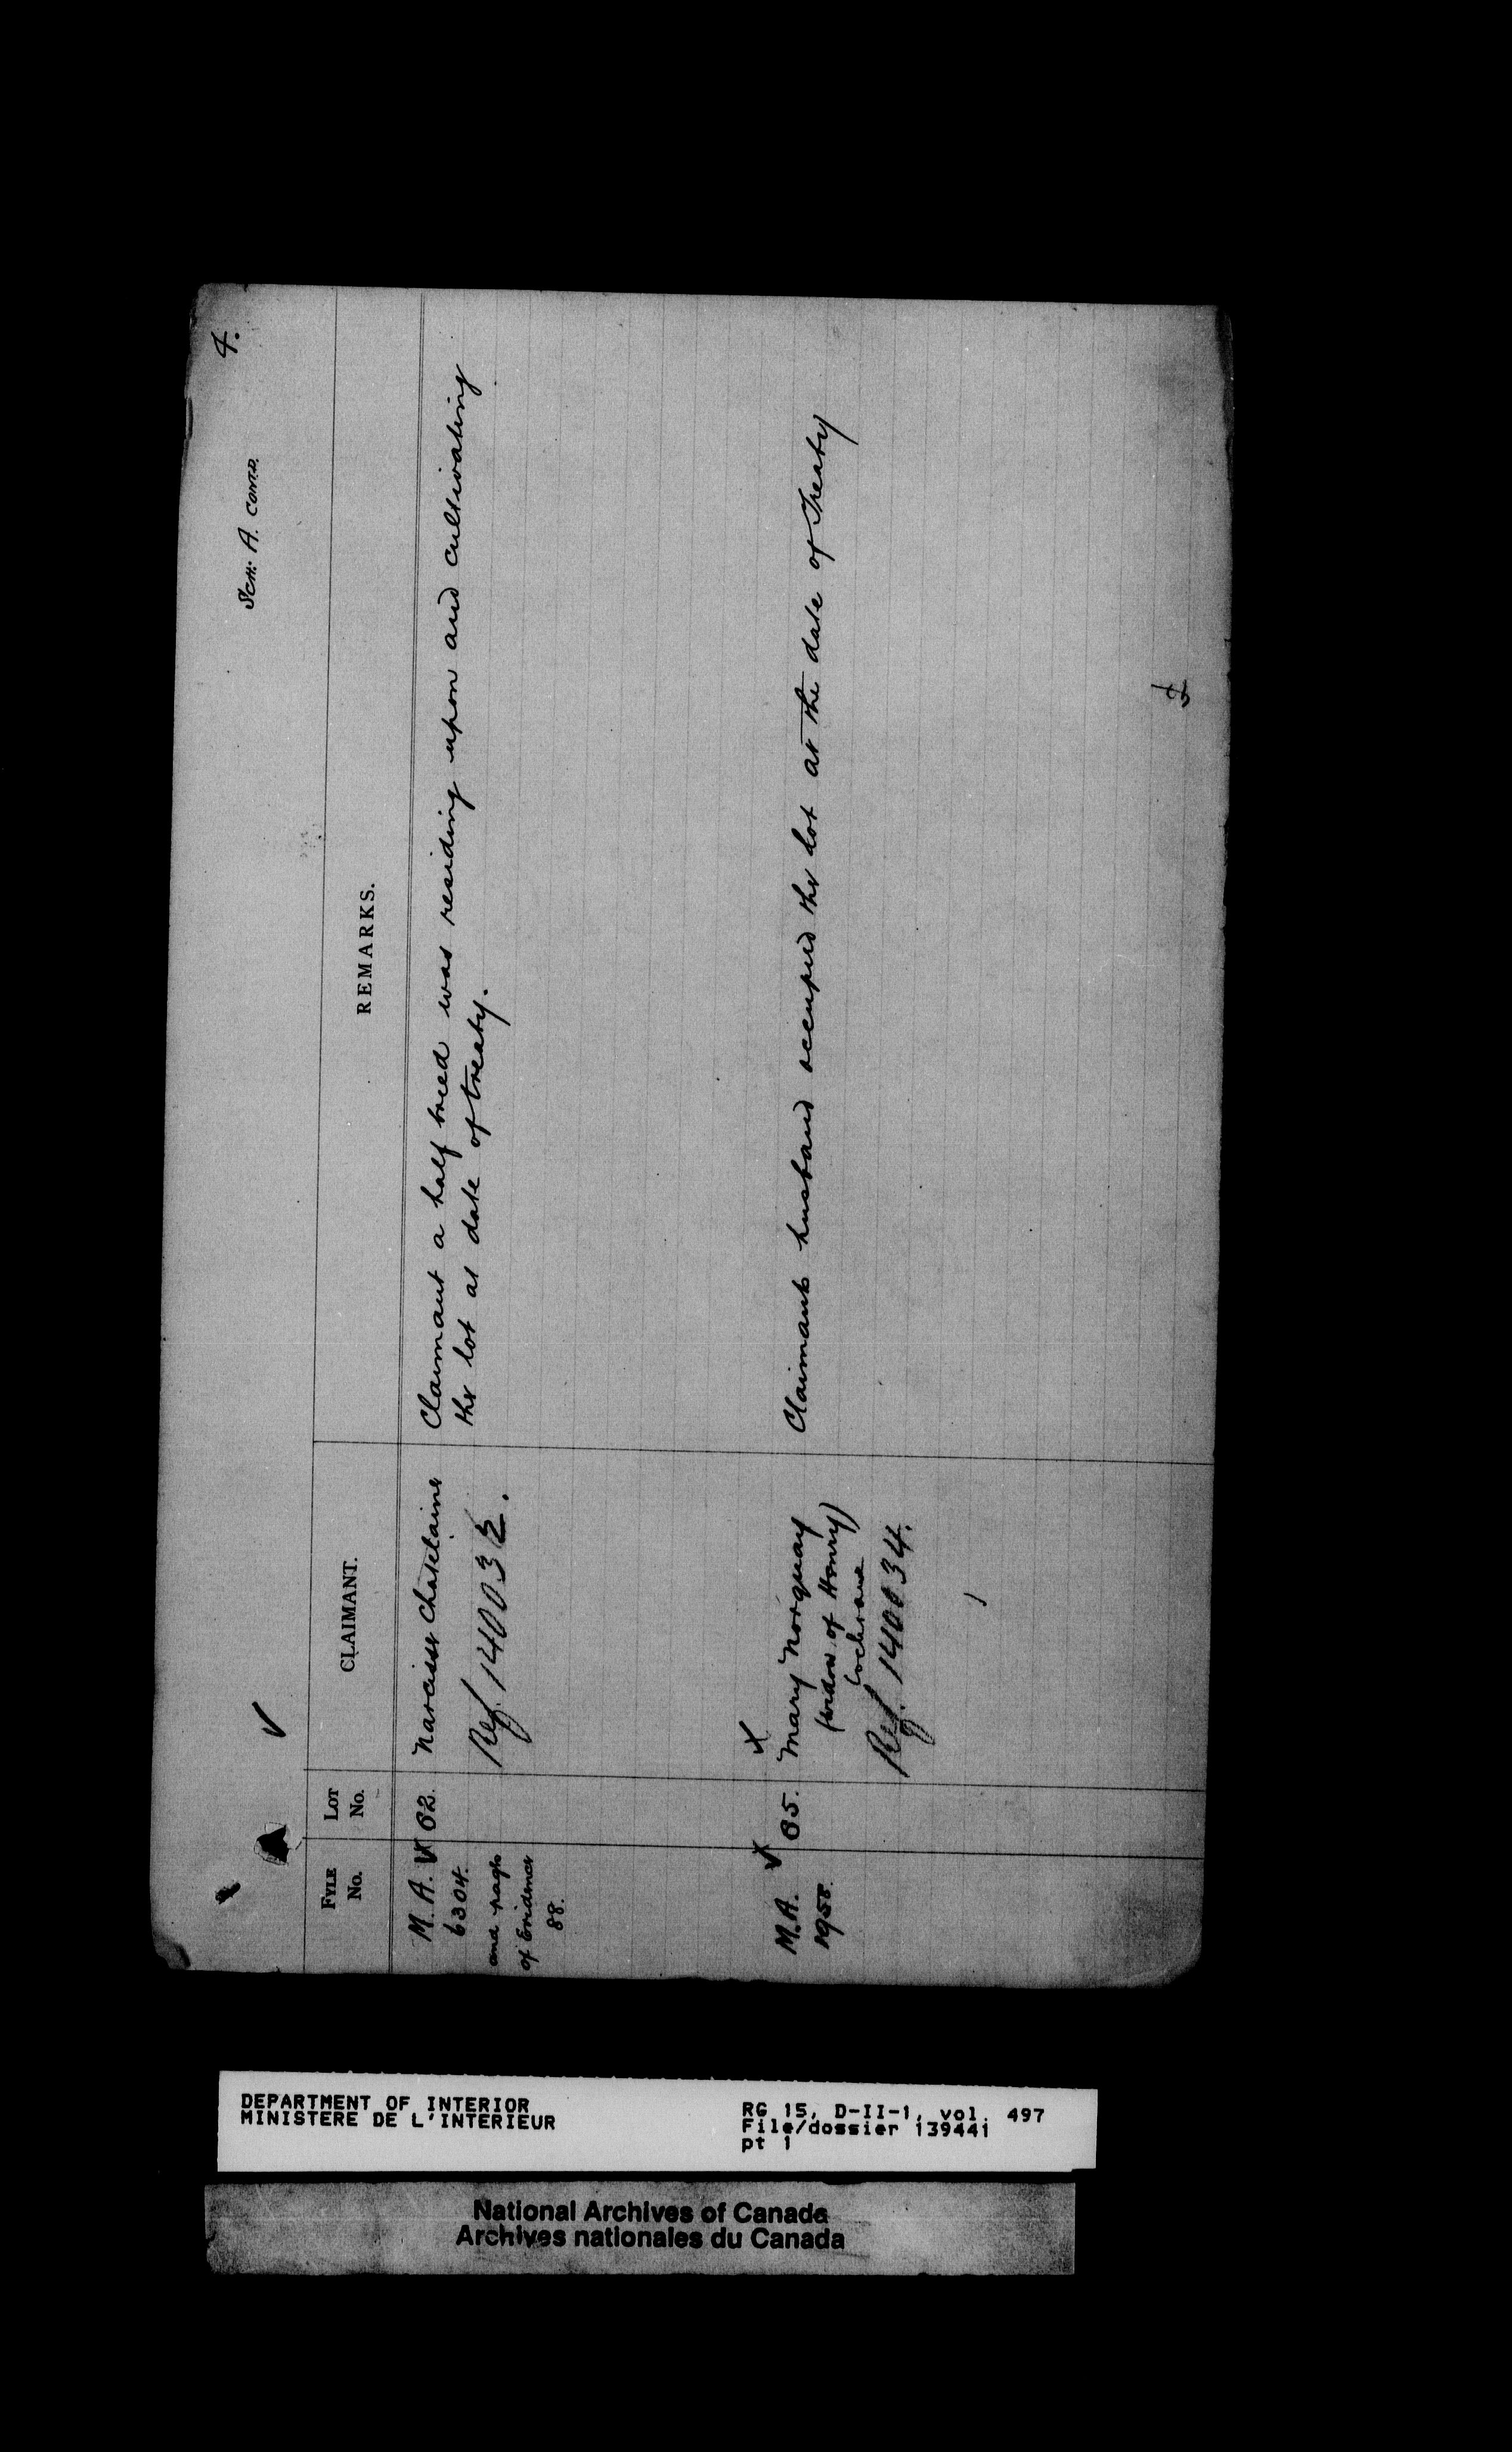 4.
Sch: A. contd.
FYLE No.
LOT No.
CLAIMANT.
REMARKS.
M. A. 62. Narcisse Chatelaine Claimant a half breed was residing upon and cultivating
6304. the lot at date of treaty.
and page Ref. 140032.
of Evidence
88.
M.A. 65. Mary Norquay Claimants husband occupied the lot at the date of Treaty
1958. (widow of Henry)
Cochrane
Ref. 140034.
DEPARTMENT OF INTERIOR
MINISTERE DE L'INTERIEUR
RG 15, D-II-1, vol. 497
File/dossier 139441
pt 1
National Archives of Canada
Archives nationales du Canada